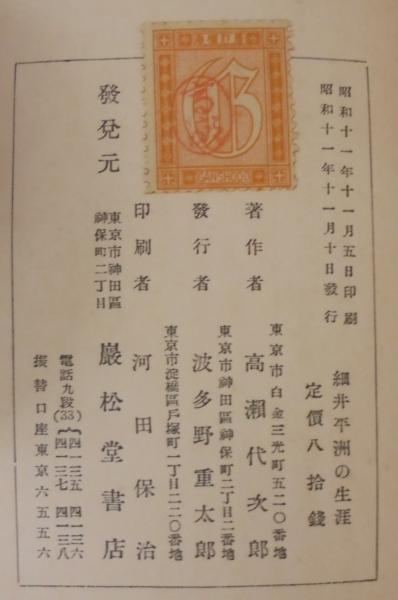 昭和十一年十一月五日印刷
昭和十一年十一月十日發行
細井平洲の生涯
定價八拾錢
東京市白金三光町五二〇番地
著作者 高瀬代次郎
東京市神田區神保町二丁目二番地
發行者 波多野重太郎
東京市淀橋區戶塚町一丁目二二〇番地
印刷者 河田保治
發兌元
東京市神田區
神保町二丁目
巖松堂書店
電話九段(33){四一三五 四一三六
四一三七 四一三八
振替口座東京六五五六
GANSHODO